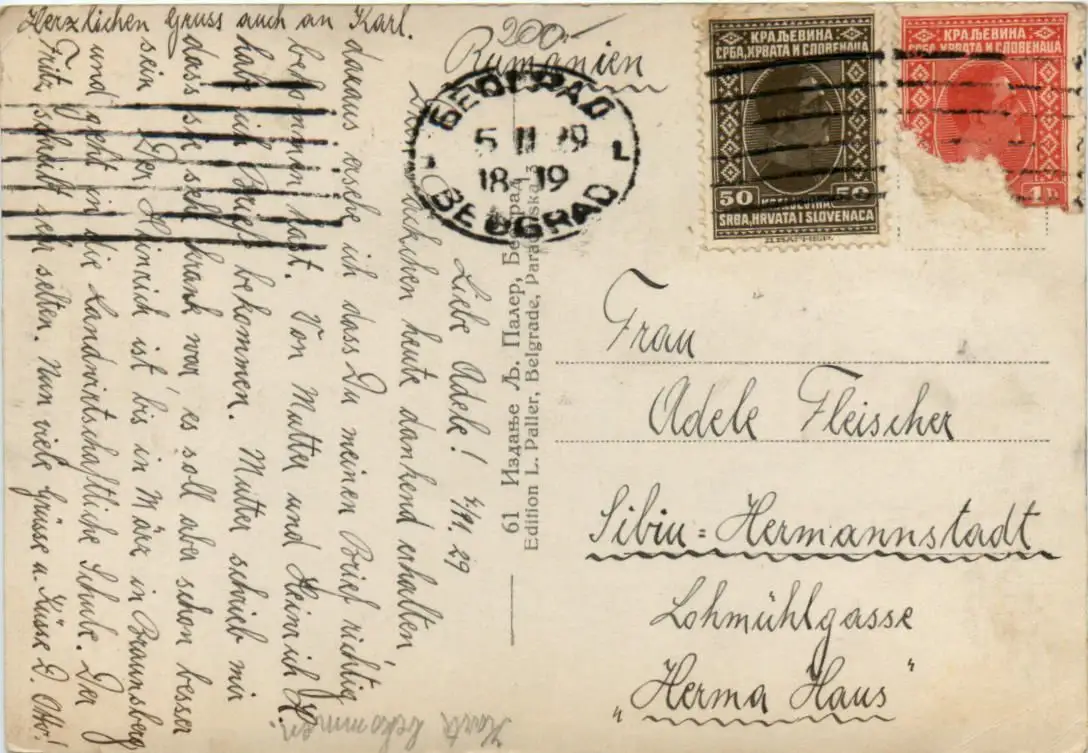 Herzlichen Gruss auch an Karl.
Liebe Adele! 4/11. 29
heute dankend erhalten,
daraus ersehe ich dass Du meinen Brief richtig
bekommen hast. Von Mutter und Heinrich
hab ich bekommen. Mutter schrieb mir
dass sie sehr krank war, es soll aber schon besser
sein. Der Heinrich ist bis in März in Braunsberg
und geht in die Landwirtschaftliche Schule. Der
Fritz schreibt sehr selten. Nun viele Grüsse u. Küsse D. Otto!
Karte bekommen
61 Издање Љ. Палер, Београд
Edition L. Paller, Belgrade,
200.-
Rumänien
БЕОГРАД
5 II 29
18-19
BEOGRAD
КРАЉЕВИНА
СРБА, ХРВАТА И СЛОВЕНАЦА
50 50
KRALJEVINA
SRBA, HRVATA I SLOVENACA
Д. ВАГНЕР.
КРАЉЕВИНА
СРБА, ХРВАТА И СЛОВЕНАЦА
1 D
Frau
Adele Fleischer
Sibiu=Hermannstadt
Lohmühlgasse
„Herma Haus"